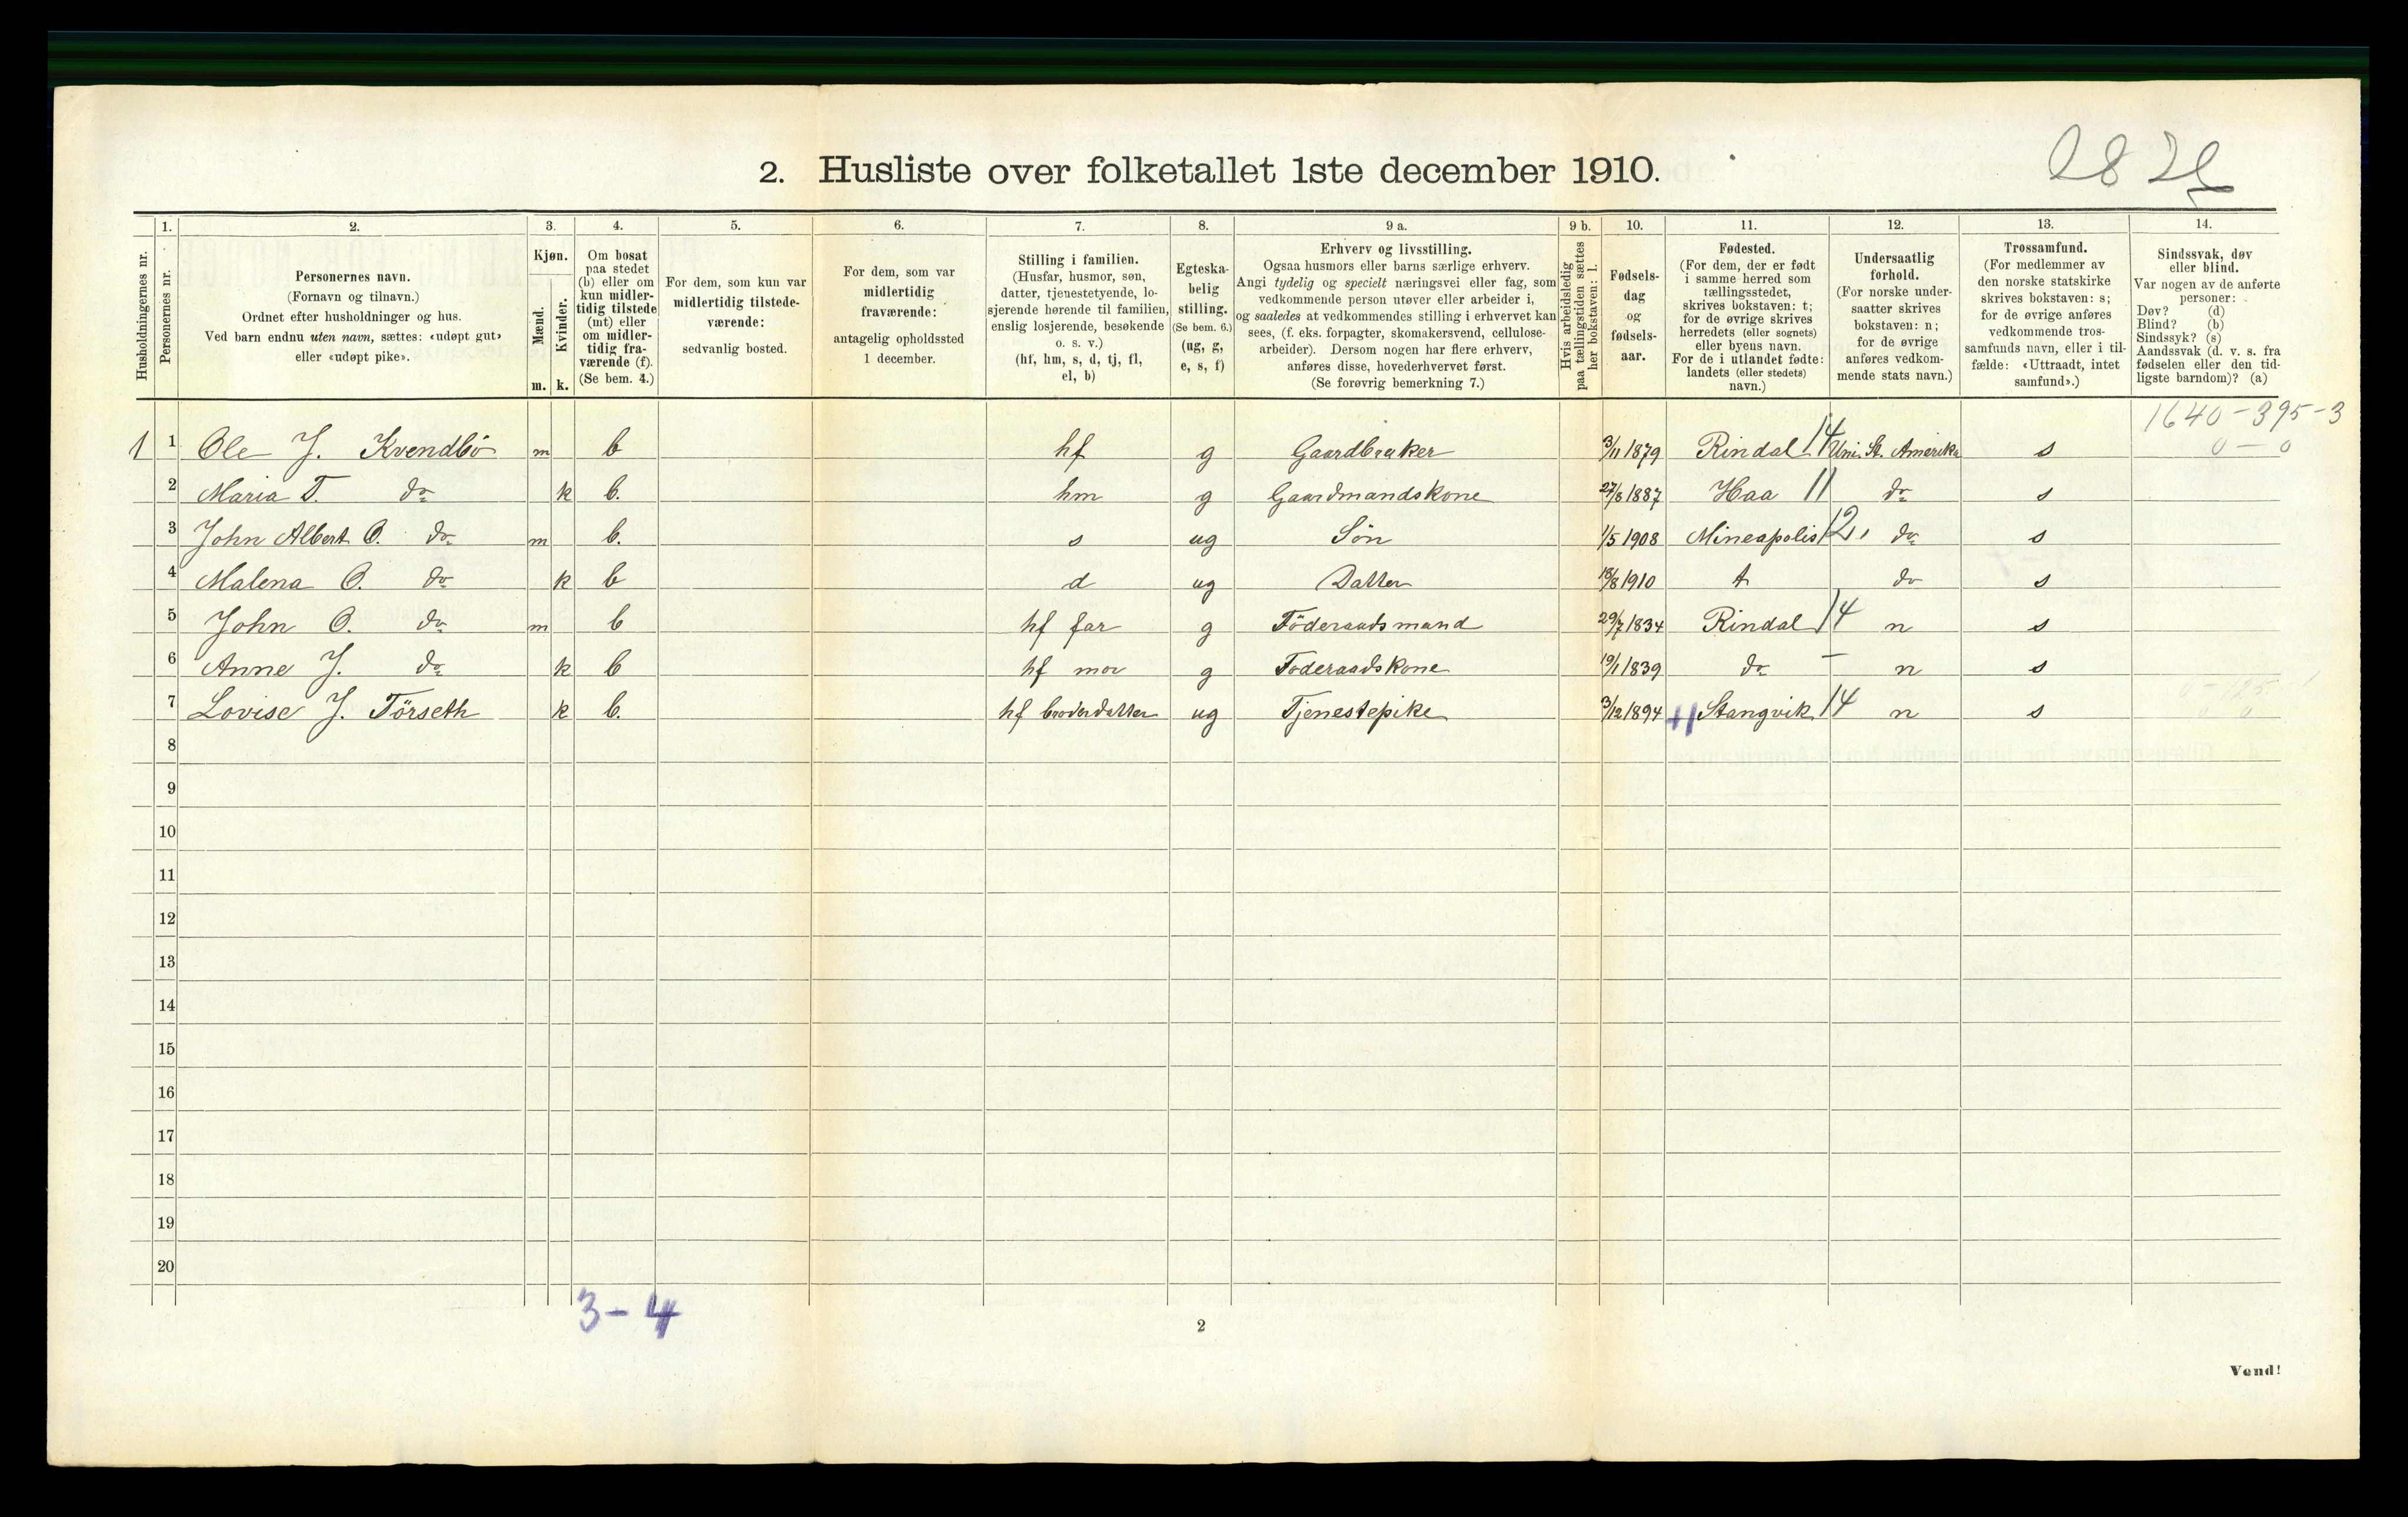 2828
2. Husliste over folketallet 1ste december 1910.
Husholdningernes nr.
1. Personernes nr.
2.
Personernes navn.
(Fornavn og tilnavn.)
Ordnet efter husholdninger og hus.
Ved barn endnu uten navn, sættes: «udøpt gut»
eller «udøpt pike».
3.
Kjøn.
Mænd. m.
Kvinder. k.
4.
Om bosat
paa stedet
(b) eller om
kun midler-
tidig tilstede
(mt) eller
om midler-
tidig fra-
værende (f).
(Se bem. 4.)
5.
For dem, som kun var
midlertidig tilstede-
værende:
sedvanlig bosted.
6.
For dem, som var
midlertidig
fraværende:
antagelig opholdssted
1 december.
7.
Stilling i familien.
(Husfar, husmor, søn,
datter, tjenestetyende, lo-
sjerende hørende til familien,
enslig losjerende, besøkende
o. s. v.)
(hf, hm, s, d, tj, fl,
el, b)
8.
Egteska-
belig
stilling.
(Se bem. 6.)
(ug, g,
e, s, f)
9 a.
Erhverv og livsstilling.
Ogsaa husmors eller barns særlige erhverv.
Angi tydelig og specielt næringsvei eller fag, som
vedkommende person utøver eller arbeider i,
og saaledes at vedkommendes stilling i erhvervet kan
sees, (f. eks. forpagter, skomakersvend, cellulose-
arbeider). Dersom nogen har flere erhverv,
anføres disse, hovederhvervet først.
(Se forøvrig bemerkning 7.)
9 b.
Hvis arbeidsledig
paa tællingstiden sættes
her bokstaven: l.
10.
Fødsels-
dag
og
fødsels-
aar.
11.
Fødested.
(For dem, der er født
i samme herred som
tællingsstedet,
skrives bokstaven: t;
for de øvrige skrives
herredets (eller sognets)
eller byens navn.
For de i utlandet fødte:
landets (eller stedets)
navn.)
12.
Undersaatlig
forhold.
(For norske under-
saatter skrives
bokstaven: n;
for de øvrige
anføres vedkom-
mende stats navn.)
13.
Trossamfund.
(For medlemmer av
den norske statskirke
skrives bokstaven: s;
for de øvrige anføres
vedkommende tros-
samfunds navn, eller i til-
fælde: «Uttraadt, intet
samfund».)
14.
Sindssvak, døv
eller blind.
Var nogen av de anførte
personer:
Døv? (d)
Blind? (b)
Sindssyk? (s)
Aandssvak (d. v. s. fra
fødselen eller den tid-
ligste barndom)? (a)
1640-395-3
0-0
1 1 Ole J. Kvendbö m b hf g Gaardbruker 3/11 1879 Rindal 14 Uni. St. Amerika s
2 Maria T. do k b. hm g Gaardmandskone 27/8 1887 Haa 11 do s
3 John Albert O. do m b. s ug Sön 1/5 1908 Mineapolis 12, do s
4 Malena O. do k b d ug Datter 18/8 1910 t do s
5 John O. do m b hf far g Föderaadsmand 29/7 1834 Rindal 14 n s
6 Anne J. do k b hf mor g Föderaadskone 19/1 1839 do - n s
7 Lovise J. Törseth k b. hf broderdatter ug Tjenestepike 3/12 1894 Stangvik 14 n s
8
9
10
11
12
13
14
15
16
17
18
19
20
3-4
2
Vend!